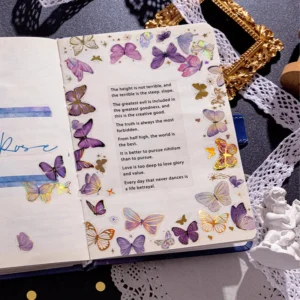 Rose
The height is not terrible, and
the terrible is the steep. slope.
The greatest evil is included in
the greatest goodness, and
this is the creative good.
The truth is always the most
forbidden.
From half high, the world is
the best.
It is better to pursue nihilism
than to pursue.
Love is too deep to lose glory
and value.
Every day that never dances is
a life betrayal.